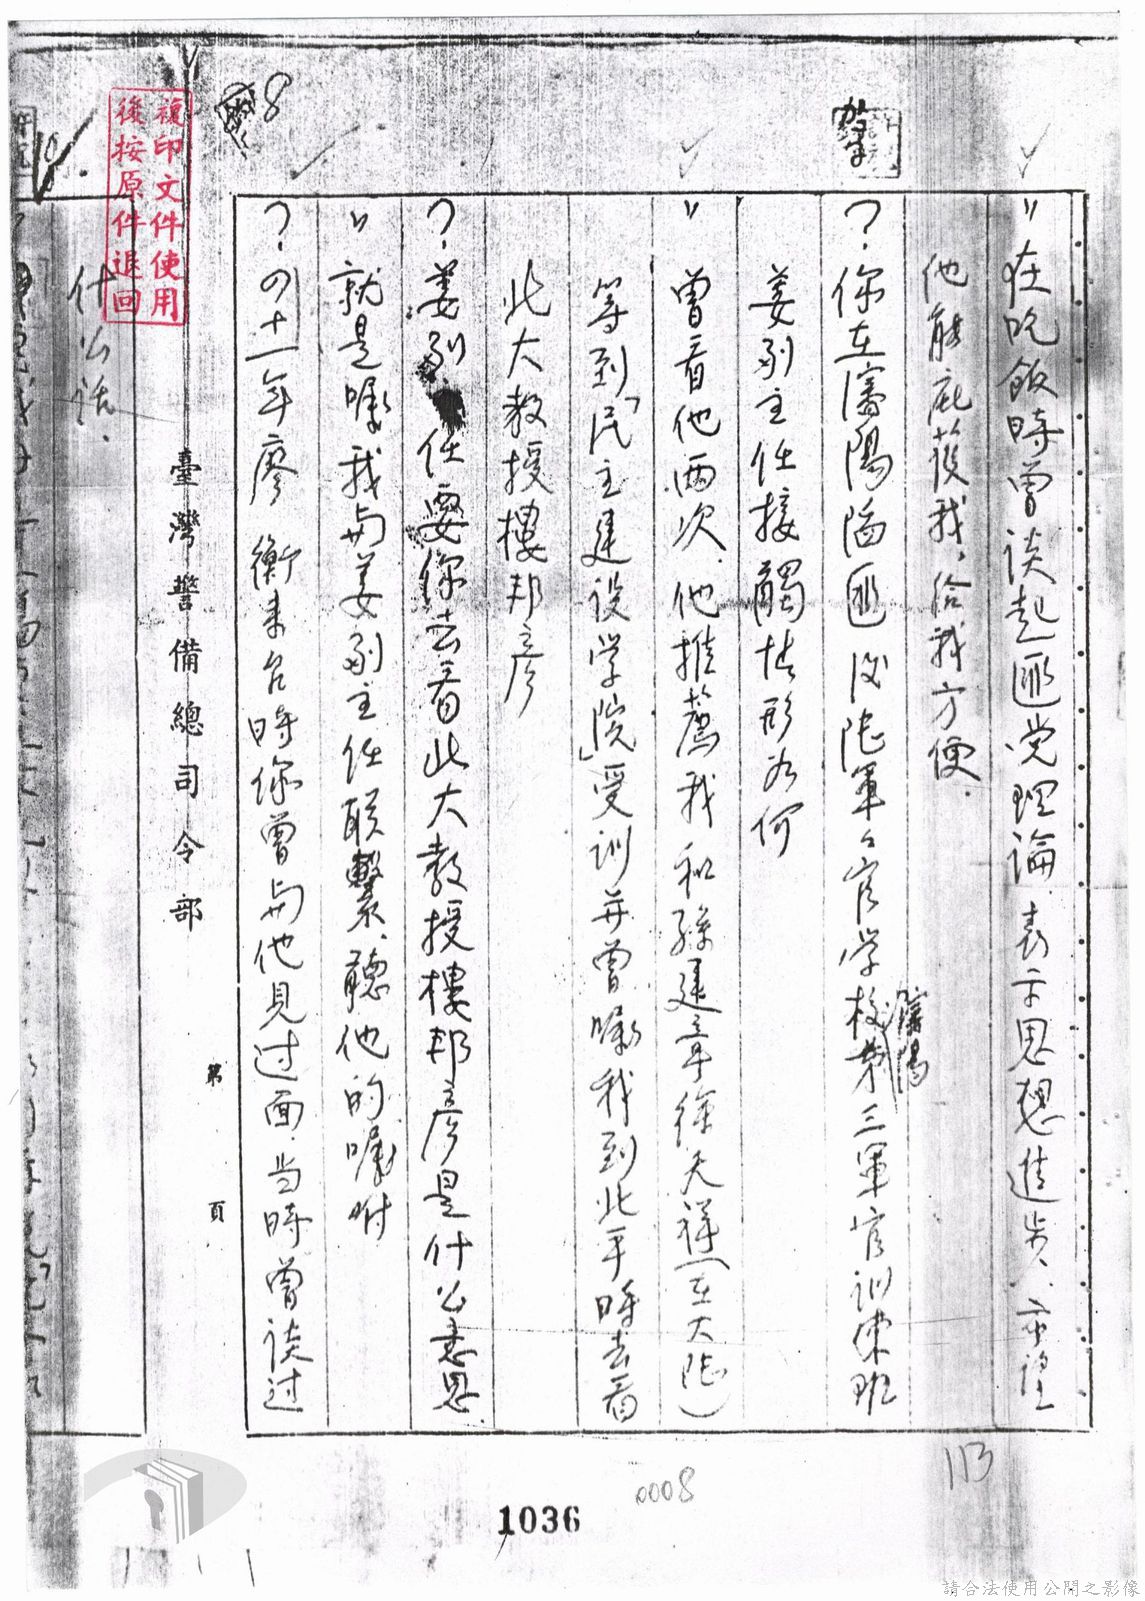 〃在吃飯時曾談起匪党理論.表示思想進步、希望
他能庇護我、給我方便.
?.你在瀋陽陷匪後陸軍々官学校瀋陽第三軍官訓練班
姜副主任接觸情形为何
〃曾看他兩次.他推薦我和孫建章徐天祥(在大陸)
等到「民主建设学院」受训并曾囑我到北平時去看
北大教授樓邦彦
?.姜副 任要你去看北大教授樓邦彦是什么意思.
〃就是囑我与姜副主任联繫、聽他的嘱咐
?.四十一年廖 衡来台時你曾与他見过面.当時曾談过
臺灣警備總司令部
第 頁
什么話.
複印文件使用
後按原件退回
8
113
0008
1036
請合法使用公開之影像